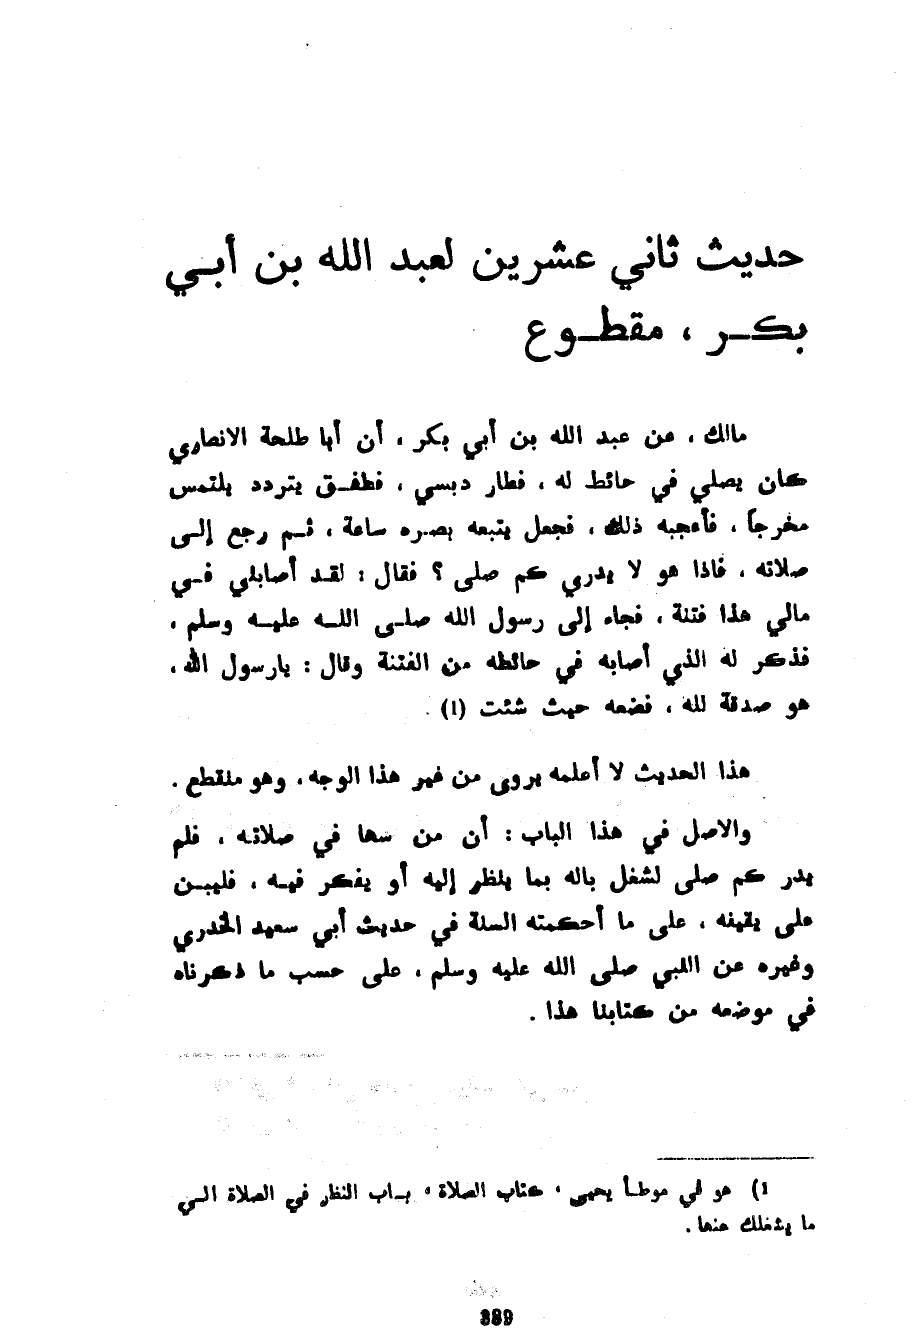 حديث ثاني عشرين لعبد الله بن أبـي
بكـر ، مقطـوع
مالك ، عن عبد الله بن أبي بكر ، أن أبا طلحة الانصاري
كان يصلي في حائط له ، فطار دبسي ، فطفـق يتردد يلتمس
مخرجاً ، فأعجبه ذلك ، فجعل يتبعه بصره ساعة ، ثـم رجع إلـى
صلاته ، فاذا هو لا يدري كم صلى ؟ فقال : لقـد أصابني فـي
مالي هذا فتنة ، فجاء إلى رسول الله صلـى اللـه عليـه وسلم ،
فذكر له الذي أصابه في حائطه من الفتنة وقال : يارسول الله ،
هو صدقة لله ، فضعه حيث شئت (1) .
هذا الحديث لا أعلمه يروى من غير هذا الوجه ، وهو منقطع .
والاصل في هذا الباب : أن من سها في صلاتـه ، فلم
يدر كم صلى لشغل باله بما ينظر إليه أو يفكر فيـه ، فليبـن
على يقينه ، على ما أحكمته السنة في حديث أبي سعيد الخدري
وغيره عن النبي صلى الله عليه وسلم ، على حسب ما ذكرناه
في موضعه من كتابنا هذا .
1) هو في موطـأ يحيى ، كتاب الصلاة ، بـاب النظر في الصلاة الـى
ما يشغلك عنها .
389